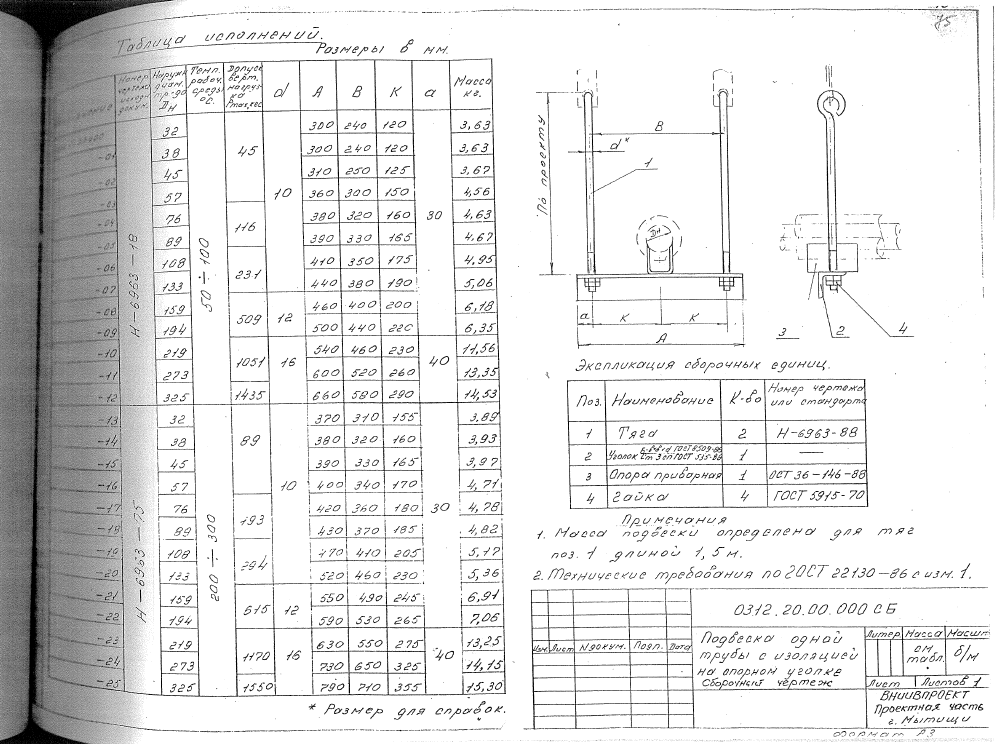 Таблица исполнений.
Размеры в мм.
Номер чертежа исход. докум. | Наружн. диам. тр-да Dн | Темп. рабоч. среды °С. | Допуск. верт. нагруз- ка Pmax, кгс | d | А | В | К | а | Масса кг.
32 | 300 | 240 | 120 | 3,63
-01 | 38 | 45 | 300 | 240 | 120 | 3,63
-02 | 45 | 310 | 250 | 125 | 3,67
-03 | 57 | 10 | 360 | 300 | 150 | 4,56
-04 | 76 | 116 | 380 | 320 | 160 | 30 | 4,63
-05 | 89 | 390 | 330 | 165 | 4,67
-06 | 108 | 231 | 410 | 350 | 175 | 4,95
-07 | 133 | 440 | 380 | 190 | 5,06
-08 | 159 | 509 | 12 | 460 | 400 | 200 | 6,18
-09 | 194 | 500 | 440 | 220 | 6,35
-10 | 219 | 1051 | 16 | 540 | 460 | 230 | 40 | 11,56
-11 | 273 | 600 | 520 | 260 | 13,35
-12 | 325 | 1435 | 660 | 580 | 290 | 14,53
Н-6963-18
50÷100
-13 | 32 | 370 | 310 | 155 | 3,89
-14 | 38 | 89 | 380 | 320 | 160 | 3,93
-15 | 45 | 390 | 330 | 165 | 3,97
-16 | 57 | 10 | 400 | 340 | 170 | 4,71
-17 | 76 | 193 | 420 | 360 | 180 | 30 | 4,78
-18 | 89 | 430 | 370 | 185 | 4,82
-19 | 108 | 294 | 470 | 410 | 205 | 5,17
-20 | 133 | 520 | 460 | 230 | 5,36
-21 | 159 | 615 | 12 | 550 | 490 | 245 | 6,91
-22 | 194 | 590 | 530 | 265 | 7,06
-23 | 219 | 1170 | 16 | 630 | 550 | 275 | 40 | 13,25
-24 | 273 | 730 | 650 | 325 | 14,15
-25 | 325 | 1550 | 790 | 710 | 355 | 15,30
Н-6963-75
200÷300
* Размер для справок.
75
По проекту
В
d*
1
Dн
а
К
К
А
3
2
4
Экспликация сборочных единиц.
Поз. | Наименование | К-во | Номер чертежа или стандарта
1 | Тяга | 2 | Н-6963-88
2 | Уголок в·в·d ГОСТ 8509-86 Ст 3 сп ГОСТ 535-88 | 1 | —
3 | Опора приварная | 1 | ОСТ 36-146-88
4 | Гайка | 4 | ГОСТ 5915-70
Примечания
1. Масса подвески определена для тяг
поз. 1 длиной 1,5 м.
2. Технические требования по ГОСТ 22130-86 с изм. 1.
0312.20.00.000 СБ
Изм. | Лист | N докум. | Подп. | Дата
Подвеска одной
трубы с изоляцией
на опорном уголке
Сборочный чертеж
Литер | Масса | Масшт
см. табл. | б/м
Лист | Листов 1
ВНИИВПРОЕКТ
Проектная часть
г. Мытищи
Формат А3